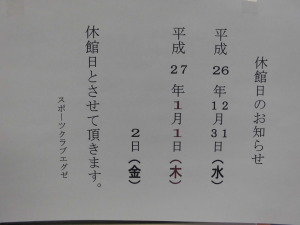 休館日のお知らせ
平成 26 年 12 月 31 日 (水)
平成 27 年 1 月 1 日 (木)
2 日 (金)
休館日とさせて頂きます。
スポーツクラブエグゼ